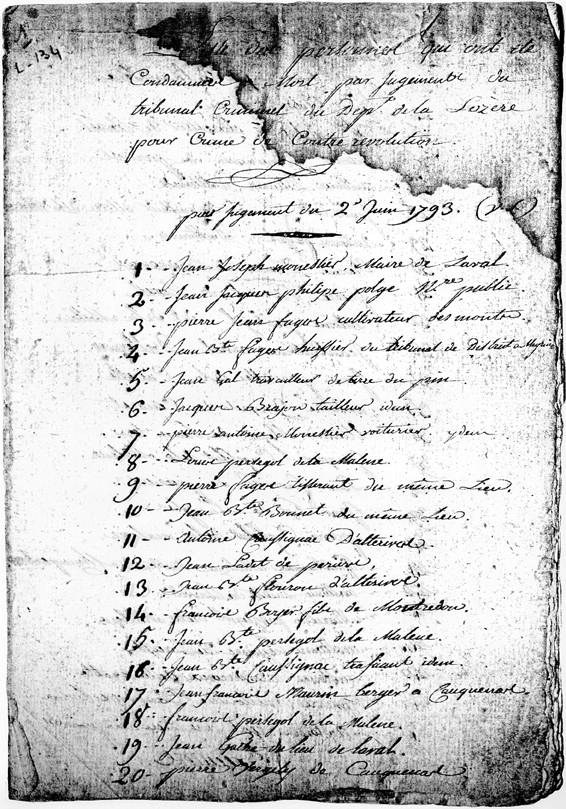 1
L-134
des personnes qui ont été
Condamnées a Mort par Jugements du
tribunal Criminel du Dept. de la Lozère
pour Crime de Contre revolution.
par Jugement du 2 Juin 1793.
1 - Jean Joseph monestier, Maire de Laval
2 - Jean Jacques philipe polge Nre. public.
3 - pierre Jean fages cultivateur des monts
4 - Jean Bte. fages huissier du tribunal de District a
5 - Jean Gal travailleur de terre du
6 - Jacques Brajon tailleur idem
7 - pierre antoine Monestier voiturier, ydem
8 - Louis persegol de la Malene.
9 - pierre fages tisserant du même Lieu.
10 - Jean Bte. Bounet du même Lieu.
11 - Antoine Caussignac
12 - Jean Ladet de
13 - Jean Bte.
14 - francois fils de Montredon.
15 - Jean Bte. persegol de la Malene.
16 - Jean Bte. Caussignac idem
17 - Jean francois Maurin berger a Cauquenas
18 - francois persegol de la Malene
19 - Jean du lieu de laval.
20 - pierre de Cauquenas